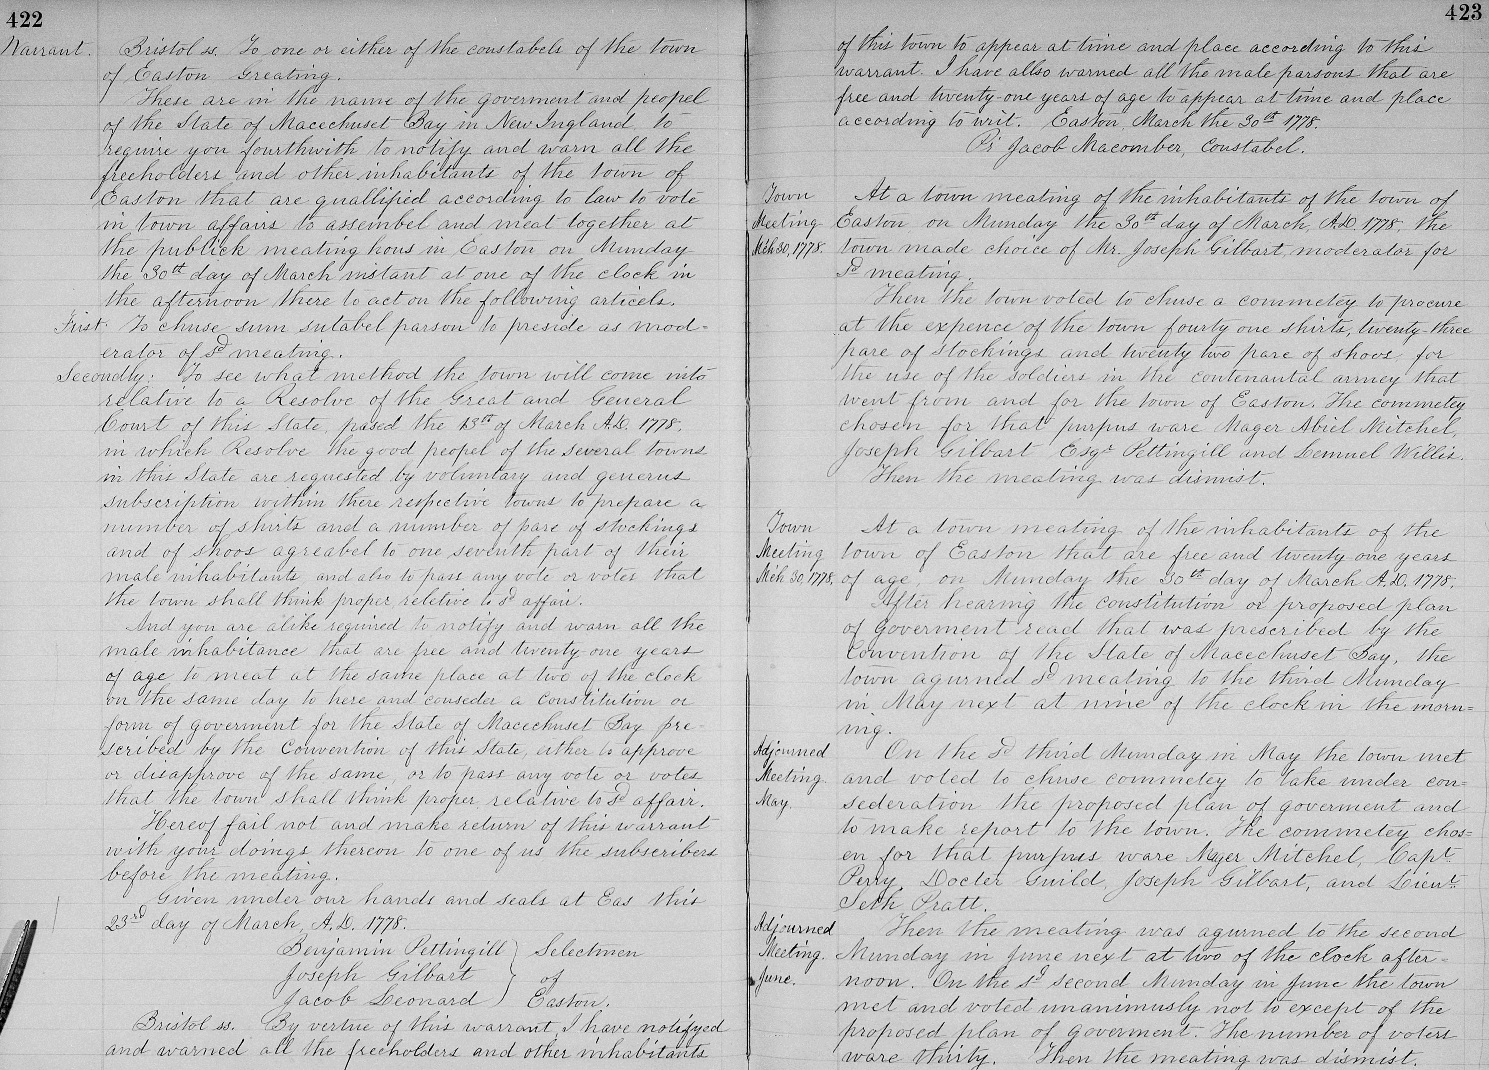 422
Warrant. Bristol ss. To one or either of the constabels of the town
of Easton Greating.
These are in the name of the goverment and peopel
of the State of Macechuset Bay in New Ingland, to
require you fourthwith to notify and warn all the
freeholders and other inhabitants of the town of
Easton that are quallified according to law to vote
in town affairs to assembel and meat together at
the publick meating hous in Easton on Munday
the 30th day of March instant at one of the clock in
the afternoon there to act on the following articels.
First. To chuse sum sutabel parson to preside as mod=
erator of sd meating.
Secondly: To see what method the town will come into
relative to a Resolve of the Great and General
Court of this State, pased the 13th of March A.D. 1778,
in which Resolve the good peopel of the several towns
in this State are requested by voluntary and generus
subscription within there respective towns to prepare a
number of shirts and a number of pare of stockings
and of shoos agreabel to one seventh part of their
male inhabitants, and also to pass any vote or votes that
the town shall think proper, reletive to sd affair.
And you are alike required to notify and warn all the
male inhabitance that are free and twenty-one years
of age, to meat at the same place at two of the clock
on the same day to here and conseder a constitution or
form of goverment for the State of Macechuset Bay pre-
scribed by the Convention of this State, either to approve
or disapprove of the same, or to pass any vote or votes
that the town shall think proper, relative to sd affair.
Hereof fail not and make return of this warrant
with your doings thereon to one of us the subscribers
before the meating.
Given under our hands and seals at Eas this
23rd day of March, A.D. 1778.
Benjamin Pettingill } Selectmen
Joseph Gilbart } of
Jacob Leonard } Easton.
Bristol ss. By vertue of this warrant, I have notifyed
and warned all the freeholders and other inhabitants
423
of this town to appear at time and place according to this
warrant. I have allso warned all the male parsons that are
free and twenty-one years of age to appear at time and place
according to writ. Easton, March the 30th 1778.
Pr Jacob Macomber, Constabel.
Town
Meeting
Mch 30, 1778.
At a town meating of the inhabitants of the town of
Easton on Munday the 30th day of March, A.D. 1778, the
town made choice of Mr. Joseph Gilbart, moderator for
sd meating.
Then the town voted to chuse a commetey to procure
at the expence of the town fourty one shirts, twenty-three
pare of stockings and twenty two pare of shoos, for
the use of the soldiers in the contenantal armey that
went from and for the town of Easton. The commetey
chosen for that purpus ware Mager Abiel Mitchel,
Joseph Gilbart Esqr Pettingill and Lemuel Willis.
Then the meating was dismist.
Town
Meeting
Mch 30, 1778.
At a town meating of the inhabitants of the
town of Easton that are free and twenty one years
of age, on Munday the 30th day of March A.D. 1778,
After hearing the constitution or proposed plan
of goverment read that was prescribed by the
Convention of the State of Macechuset Bay, the
town agurned sd meating to the third Munday
in May next at nine of the clock in the morn=
ing.
Adjourned
Meeting
May.
On the sd third Munday in May the town met
and voted to chuse commetey to take under con=
sederation the proposed plan of goverment and
to make report to the town. The commetey chos=
en for that purpus ware Mager Mitchel, Capt.
Perry, Docter Guild, Joseph Gilbart, and Lieut.
Seth Pratt.
Adjourned
Meeting
June.
Then the meating was agurned to the second
Munday in June next at two of the clock after-
noon. On the sd second Munday in June the town
met and voted unanimusly not to except of the
proposed plan of goverment. The number of voters
ware thirty. Then the meating was dismist.